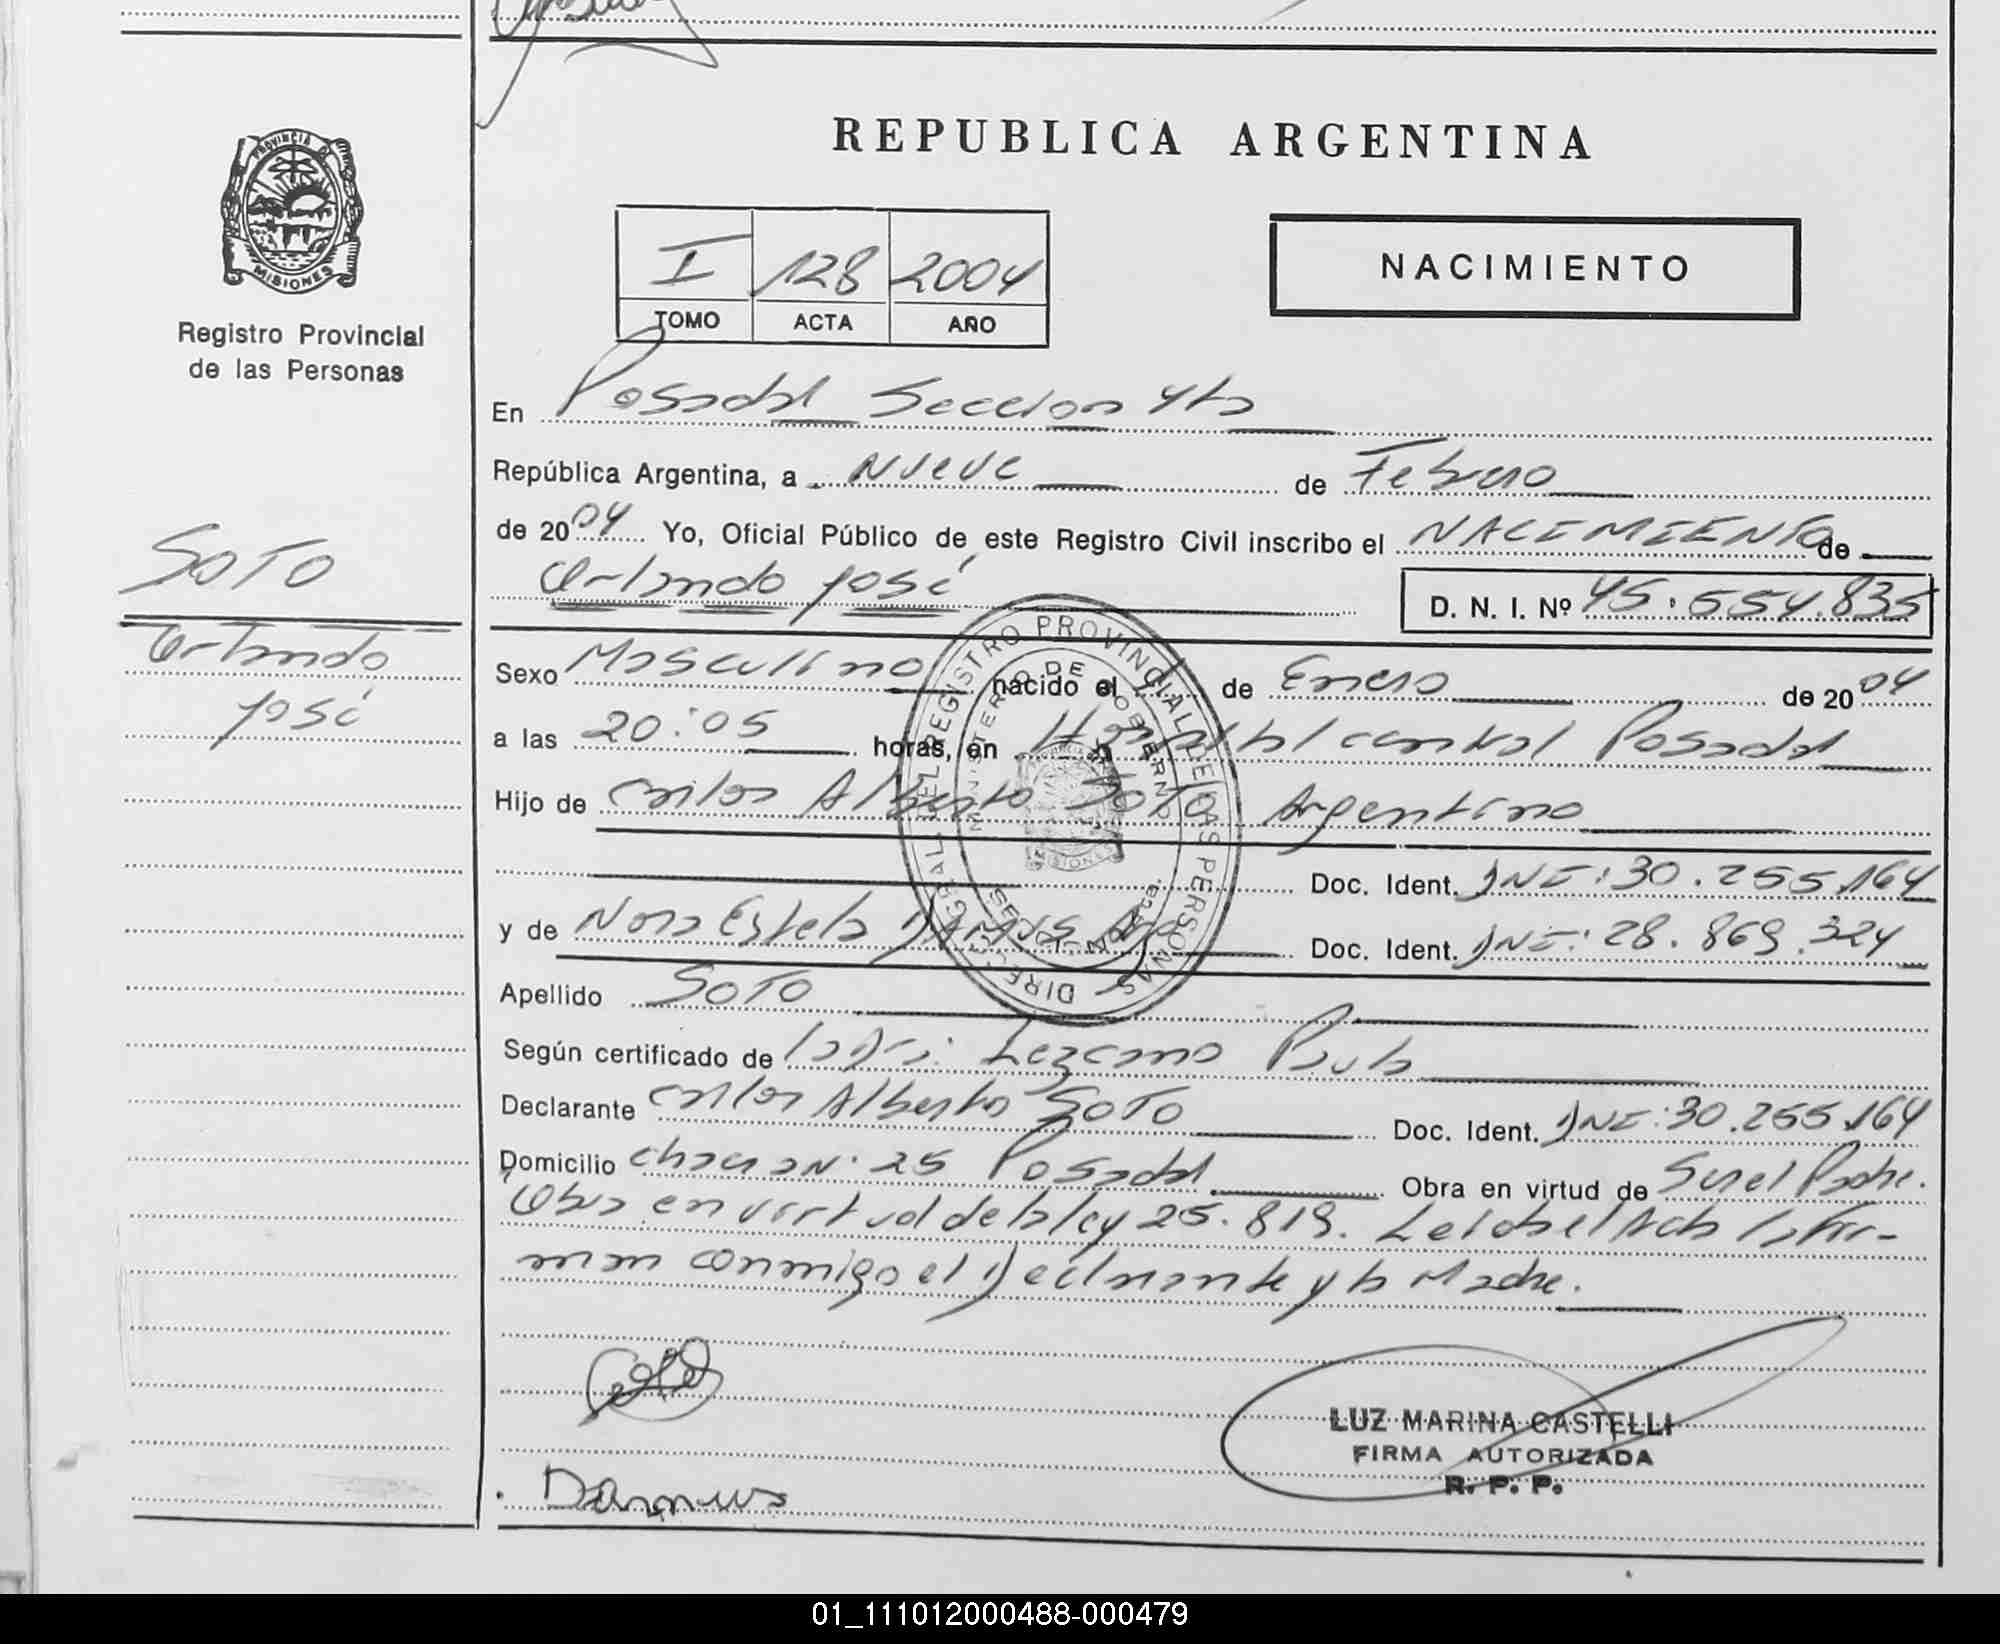 REPUBLICA ARGENTINA
PROVINCIA DE MISIONES
Registro Provincial
de las Personas
I 128 2004
TOMO ACTA AÑO
NACIMIENTO
En Posadas Seccion 4ta
República Argentina, a Nueve de Febrero
de 2004 Yo, Oficial Público de este Registro Civil inscribo el NACIMIENTO de
Orlando José D. N. I. Nº 45.554.835
SOTO
Orlando
José
Sexo Masculino nacido el de Enero de 2004
a las 20:05 horas, en Hospital central Posadas
Hijo de Carlos Alberto SOTO Argentino
Doc. Ident. DNI: 30.255.164
y de Nora Estela Doc. Ident. DNI: 28.869.324
Apellido SOTO
Según certificado de la Dra: Lezcano Paula
Declarante Carlos Alberto SOTO Doc. Ident. DNI: 30.255.164
Domicilio Chacra Nº 25 Posadas Obra en virtud de Ser el Padre.
Obra en virtud de la ley 25.819. Leida el Acta la fir-
man conmigo el Declarante y la Madre.
DIRECC. GENERAL DEL REGISTRO PROVINCIAL DE LAS PERSONAS
MINISTERIO DE GOBIERNO
MISIONES
LUZ MARINA CASTELLI
FIRMA AUTORIZADA
R. P. P.
01_111012000488-000479